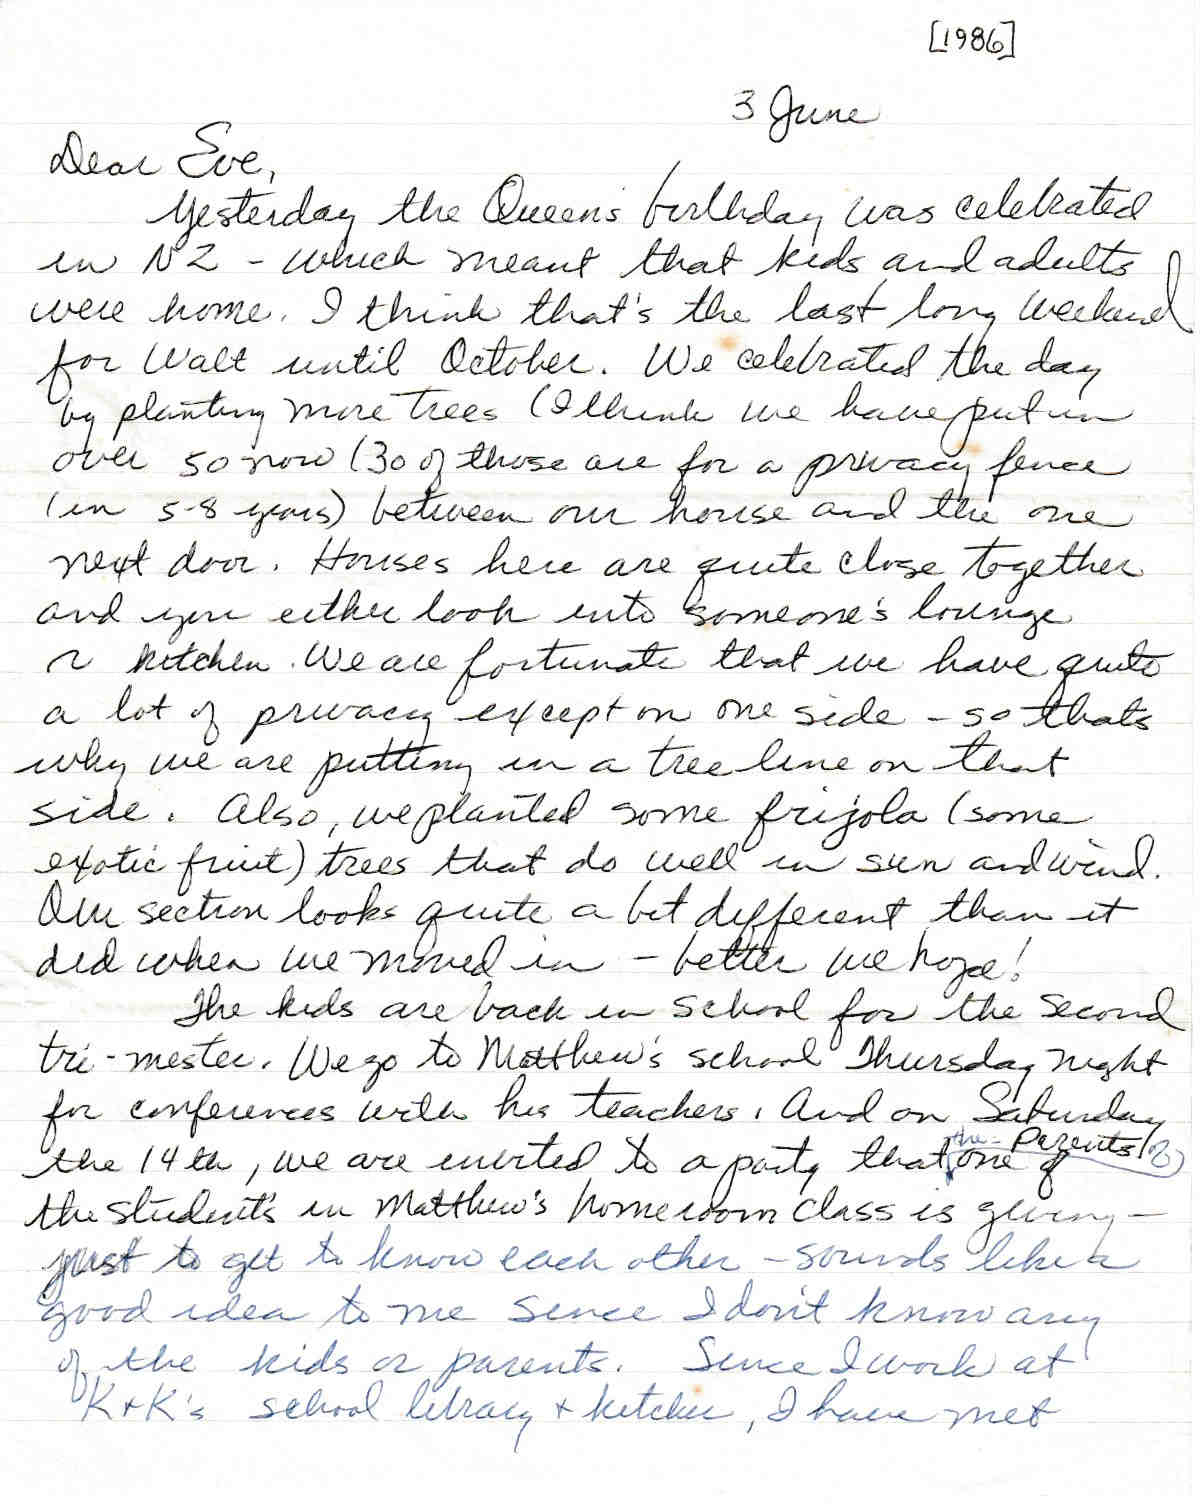 [1986]
3 June
Dear Eve,
Yesterday the Queen's birthday was celebrated
in NZ - which meant that kids and adults
were home. I think that's the last long weekend
for Walt until October. We celebrated the day
by planting more trees (I think we have put in
over 50 now (30 of those are for a privacy fence
(in 5-8 years) between our house and the one
next door. Houses here are quite close together
and you either look into someone's lounge
or kitchen. We are fortunate that we have quite
a lot of privacy except on one side - so thats
why we are putting in a tree line on that
side. Also, we planted some frijola (some
exotic fruit) trees that do well in sun and wind.
Our section looks quite a bit different than it
did when we moved in - better we hope!
The kids are back in school for the second
tri-mester. We go to Matthew's school Thursday night
for conferences with his teachers. And on Saturday
the 14th, we are invited to a party that the parents of one of
the student's in Matthew's homeroom class is giving -
just to get to know each other - sounds like a
good idea to me since I don't know any
of the kids or parents. Since I work at
K+K's school library + kitchen, I have met